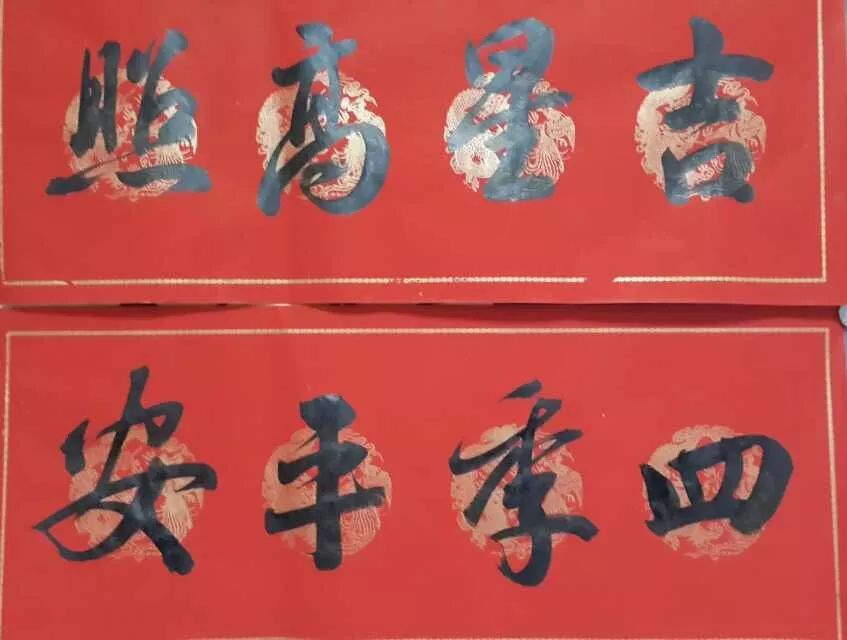 吉星高照
四季平安